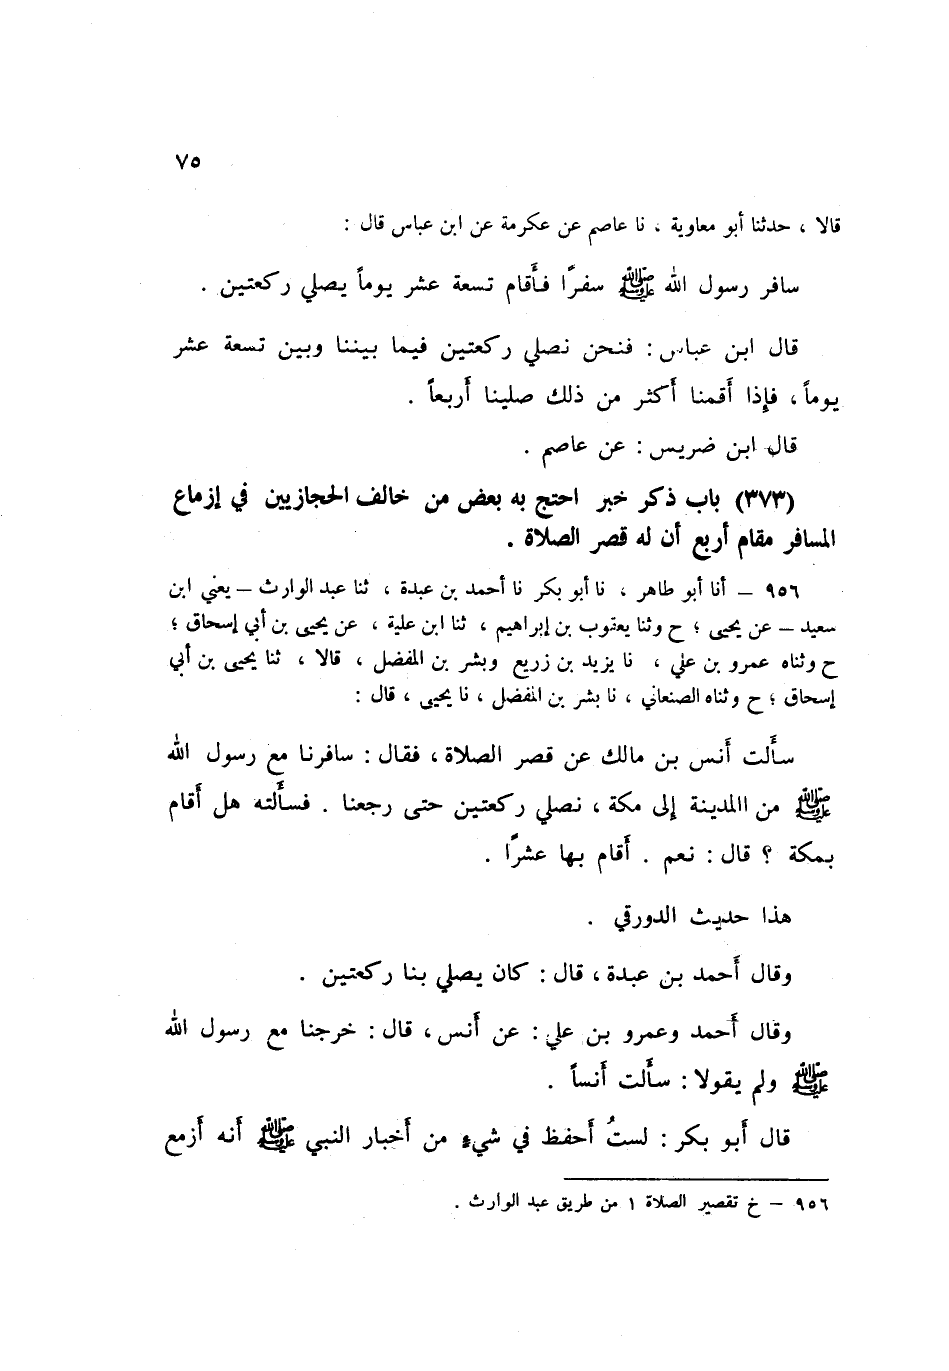 ٧٥
قالا ، حدثنا أبو معاوية ، نا عاصم عن عكرمة عن ابن عباس قال :
سافر رسول الله ﷺ سفرًا فأقام تسعة عشر يوماً يصلي ركعتين .
قال ابن عباس : فنحن نصلي ركعتين فيما بيننا وبين تسعة عشر
يوماً ، فإذا أقمنا أكثر من ذلك صلينا أربعاً .
قال ابن ضريس : عن عاصم .
(٣٧٣) باب ذكر خبر احتج به بعض من خالف الحجازيين في إزماع
المسافر مقام أربع أن له قصر الصلاة .
٩٥٦ – أنا أبو طاهر ، نا أبو بكر نا أحمد بن عبدة ، ثنا عبد الوارث – يعني ابن
سعيد – عن يحيى ؛ ح وثنا يعقوب بن إبراهيم ، ثنا ابن علية ، عن يحيى بن أبي إسحاق ؛
ح وثناه عمرو بن علي ، نا يزيد بن زريع وبشر بن المفضل ، قالا ، ثنا يحيى بن أبي
إسحاق ؛ ح وثناه الصنعاني ، نا بشر بن المفضل ، نا يحيى ، قال :
سألت أنس بن مالك عن قصر الصلاة ، فقال : سافرنا مع رسول الله
ﷺ من االمدينة إلى مكة ، نصلي ركعتين حتى رجعنا . فسألته هل أقام
بمكة ؟ قال : نعم . أقام بها عشرًا .
هذا حديث الدورقي .
وقال أحمد بن عبدة ، قال : كان يصلي بنا ركعتين .
وقال أحمد وعمرو بن علي : عن أنس ، قال : خرجنا مع رسول الله
ﷺ ولم يقولا : سألت أنساً .
قال أبو بكر : لستُ أحفظ في شيء من أخبار النبي ﷺ أنه أزمع
٩٥٦ – خ تقصير الصلاة ١ من طريق عبد الوارث .